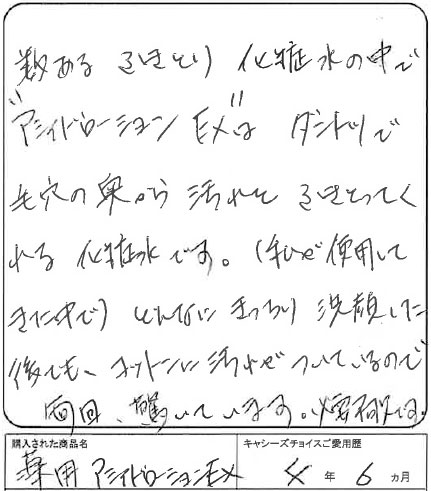 数ある ふきとり 化粧水の中で
"アシィドローション EX"は ダントツで
毛穴の奥から 汚れを ふきとってく
れる 化粧水です。(私が使用して
きた中で) どんなに きっちり 洗顔した
後でも、コットンに汚れが ついているので
毎回、驚いています。必需品です。
購入された商品名
キャシーズチョイスご愛用歴
薬用 アシィドローションEX
4 年 6 ヵ月